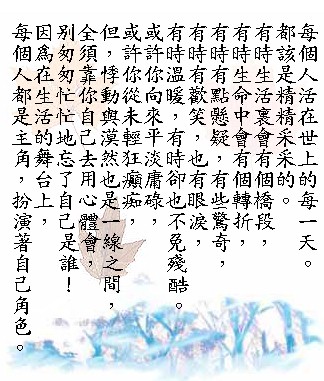 每個人活在世上的每一天。
都該是精精采采的。
有時生活裏會有個橋段，
有時生命中會有個轉折，
有時有點懸疑，有些驚奇，
有時有歡笑，也有眼淚，
有時溫暖，有時卻也不免殘酷。
或許你向來平淡庸碌，
或許你從未輕狂癲痴，
但，悸動與漠然也是一線之間，
全須靠你自己去用心體會，
別匆匆忙忙地忘了自己是誰！
因爲在生活的舞台上，
每個人都是主角，扮演著自己角色。